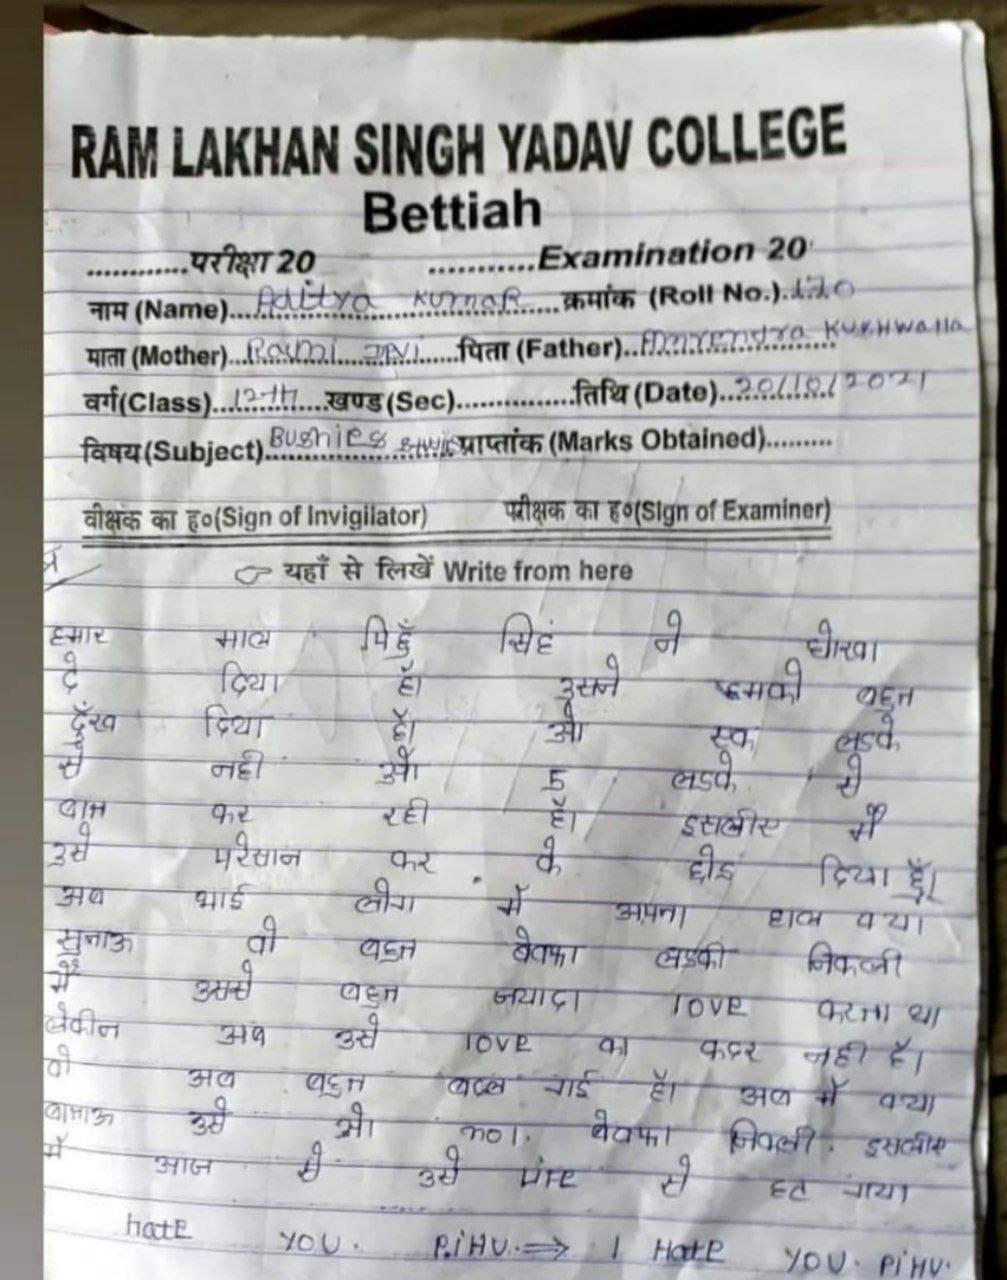 RAM LAKHAN SINGH YADAV COLLEGE
Bettiah
............परीक्षा 20 ...........Examination 20
नाम (Name)....Aditya Kumar....क्रमांक (Roll No.).170
माता (Mother)..........पिता (Father)..Amrendra Kushwaha
वर्ग(Class)....12th....खण्ड(Sec)...............तिथि (Date)..20/10/2021
विषय(Subject)..............प्राप्तांक (Marks Obtained).........
वीक्षक का ह०(Sign of Invigilator) परीक्षक का ह०(Sign of Examiner)
यहाँ से लिखें Write from here
हमार माल पिहुँ सिहं ने धोखा
दे दिया है। उसने हमको बहुत
दुँख दिया है। ओ एक लडके
से नही ओ 5 लडके से
बात कर रही है। इसलीए मैं
उसे परेसान कर के छोड़ दिया हुँ।
अब भाई लोग मैं अपना हाल क्या
सुनाऊ वो बहुत बेवफा लडकी निकली
मैं उससे बहुत जयादा love करता था
लेकीन अब उसे love का कदर नही है।
वो अब बहुत बदल गई है। अब मैं क्या
बाताऊ उसे ओ no1. बेवफा निकली. इसलीए
मैं आज से उसे से हट गया
Hate YOU. PiHU. ⇒ I Hate YOU. PiHU.